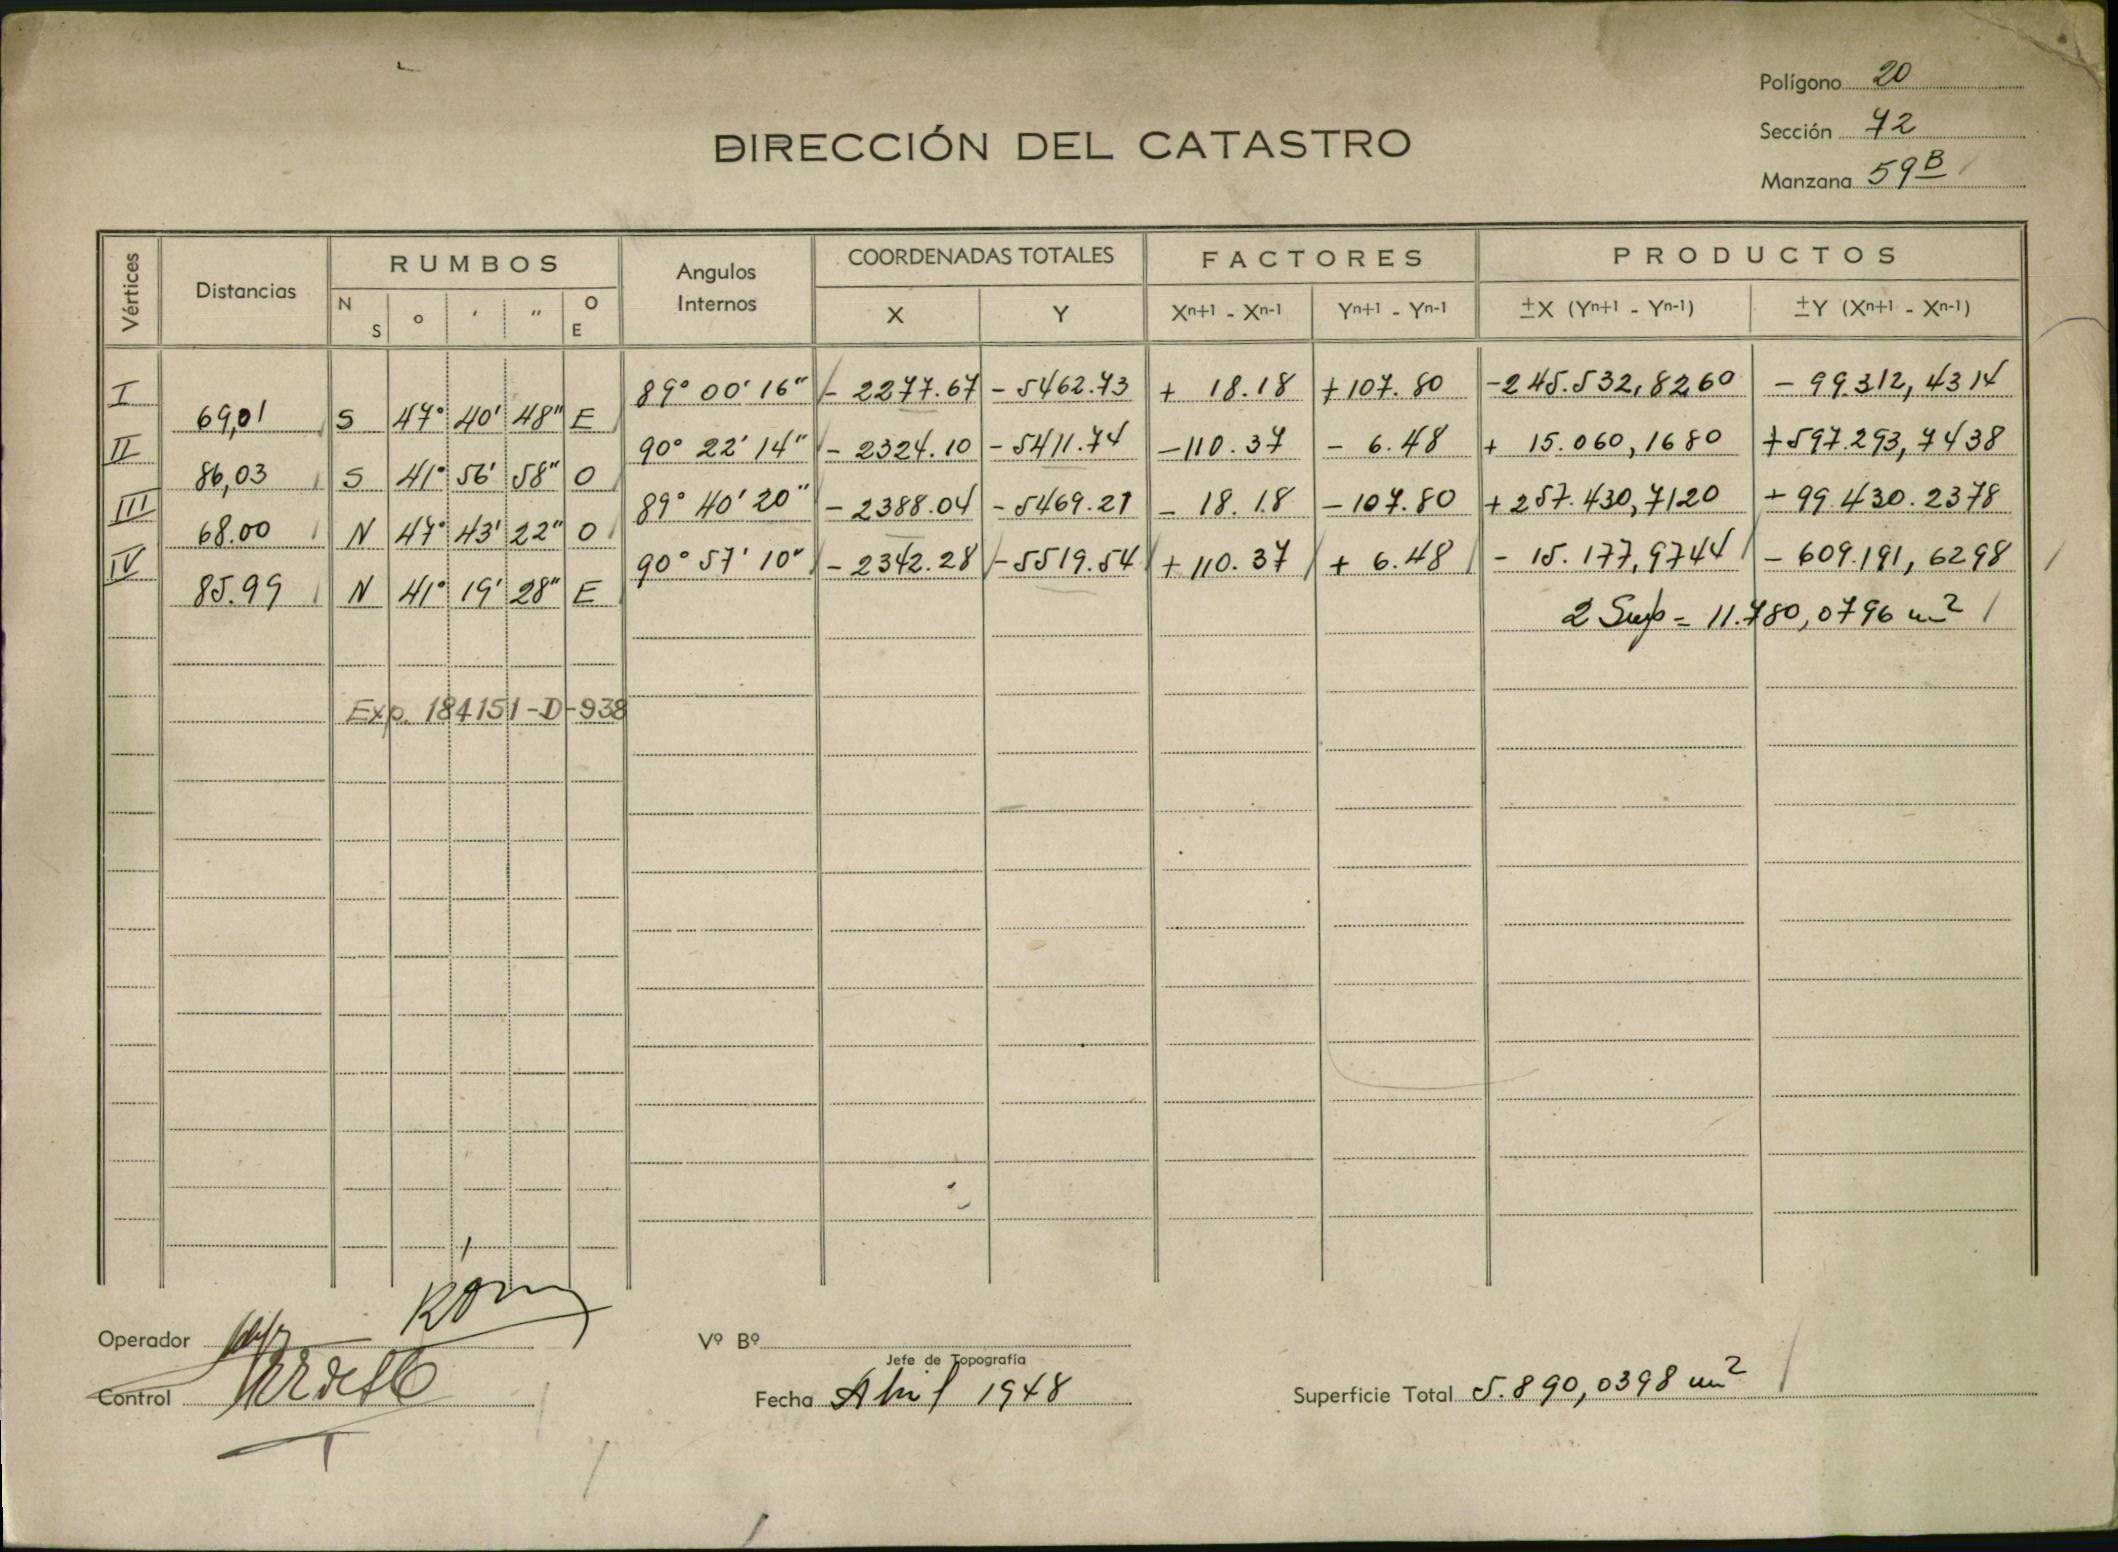 Polígono 20
DIRECCIÓN DEL CATASTRO
Sección 72
Manzana 59 B
Vértices Distancias RUMBOS Angulos Internos COORDENADAS TOTALES FACTORES PRODUCTOS
N S o ' " O E X Y Xn+1 - Xn-1 Yn+1 - Yn-1 ±X (Yn+1 - Yn-1) ±Y (Xn+1 - Xn-1)
I 89° 00' 16" - 2277.67 - 5462.73 + 18.18 + 107.80 - 245.532,8260 - 99.312,4314
69,01 S 47° 40' 48" E
II 90° 22' 14" - 2324.10 - 5411.74 - 110.37 - 6.48 + 15.060,1680 + 597.293,7438
86,03 S 41° 56' 58" O
III 89° 40' 20" - 2388.04 - 5469.21 - 18.18 - 107.80 + 257.430,7120 + 99.430.2378
68.00 N 47° 43' 22" O
IV 90° 57' 10" - 2342.28 - 5519.54 + 110.37 + 6.48 - 15.177,9744 - 609.191,6298
85.99 N 41° 19' 28" E
2 Sup = 11.780,0796 m²
Exp. 184151-D-938
Operador
Vº Bº
Jefe de Topografía
Control
Fecha Abril 1948
Superficie Total 5.890,0398 m²